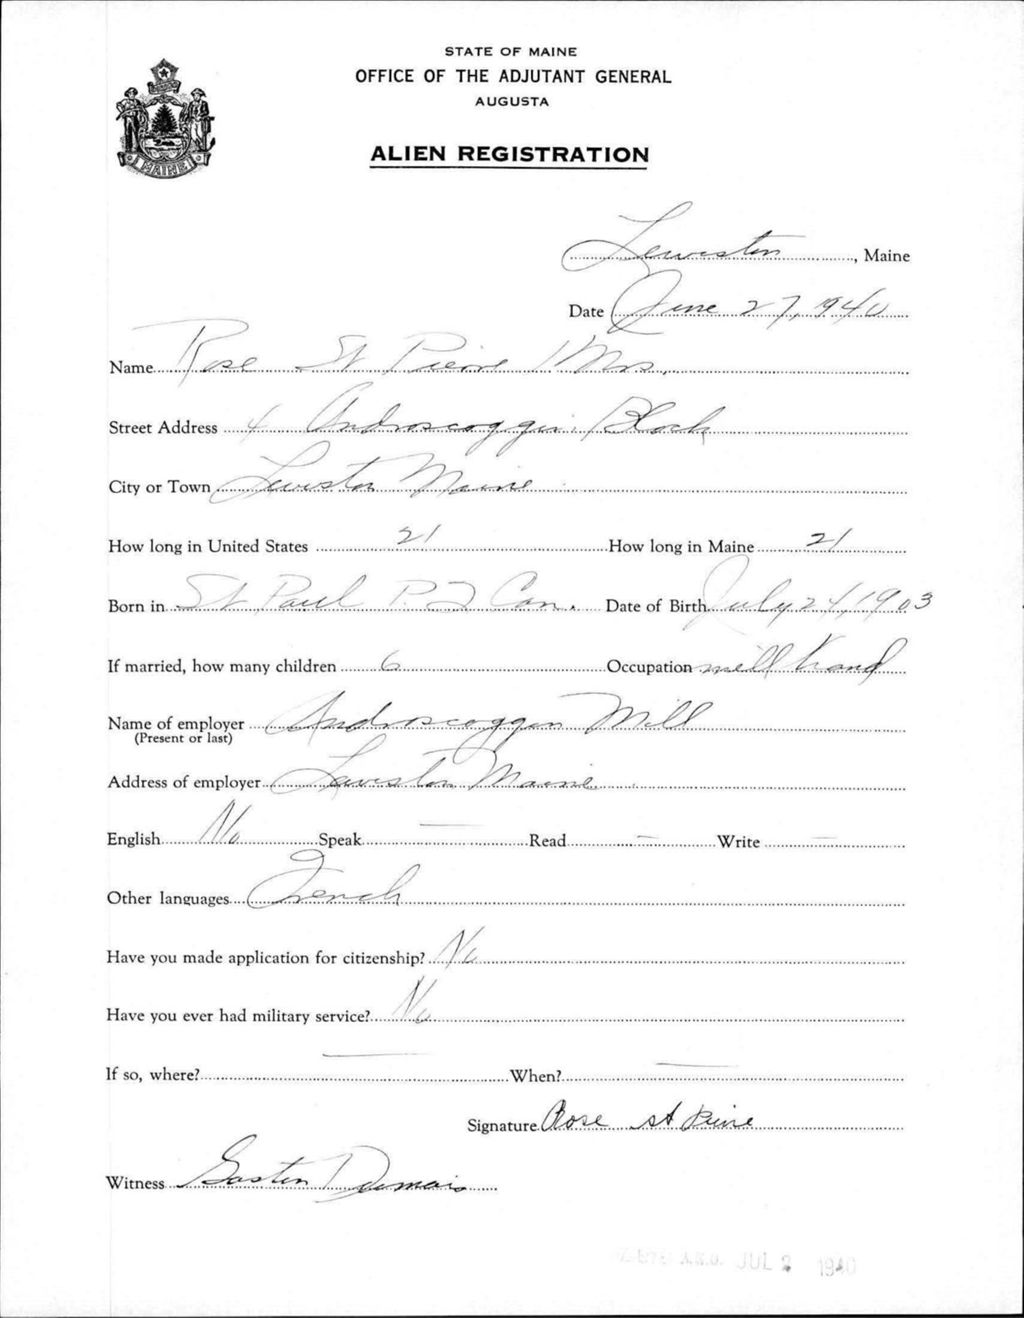 STATE OF MAINE
OFFICE OF THE ADJUTANT GENERAL
AUGUSTA
MAINE
ALIEN REGISTRATION
Lewiston, Maine
Date June 27, 1940
Name Rose St Pierre Mrs.
Street Address 4 Androscoggin Block
City or Town Lewiston Maine
How long in United States 21 How long in Maine 21
Born in St Paul P. Q Can. Date of Birth July 24, 1903
If married, how many children 6 Occupation mill hand
Name of employer Androscoggin Mill
(Present or last)
Address of employer Lewiston Maine
English No Speak — Read — Write —
Other languages French
Have you made application for citizenship? No
Have you ever had military service? No
If so, where? — When? —
Signature Rose st Pierre
Witness Gaston Dumais
A.G.O. JUL 2 1940